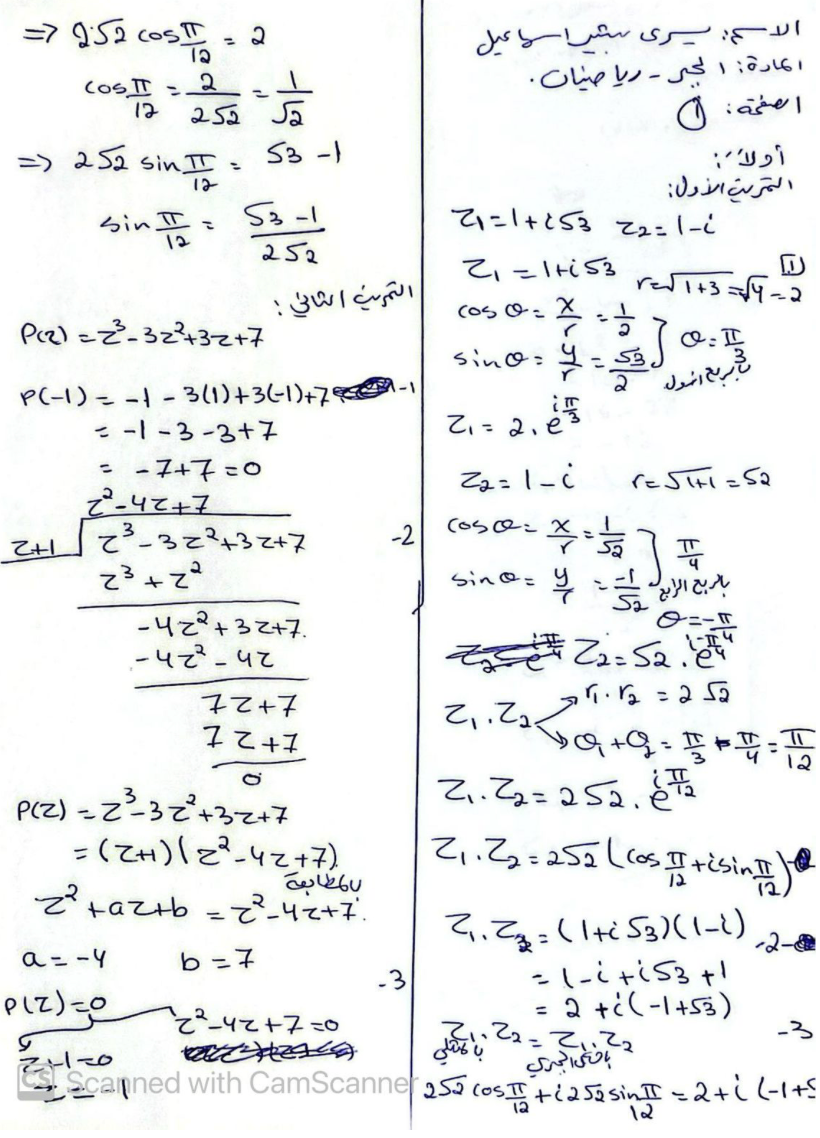 الاسم: يسرى بشير اسماعيل
المادة: الجبر - رياضيات.
الصفحة: ①
أولاً:
التمرين الأول:
z₁=1+i√3 z₂=1-i
1
z₁ = 1+i√3 r=√1+3=√4=2
cos θ = x/r = 1/2
sin θ = y/r = √3/2 } θ = π/3
بالربع الأول
z₁ = 2.e^(iπ/3)
z₂ = 1-i r=√1+1=√2
cos θ = x/r = 1/√2
sin θ = y/r = -1/√2 } π/4
بالربع الرابع
θ = -π/4
z₂ = √2.e^(i-π/4)
z₁.z₂ → r₁.r₂ = 2√2
→ θ₁+θ₂ = π/3 - π/4 = π/12
z₁.z₂ = 2√2.e^(iπ/12)
z₁.z₂ = 2√2(cos π/12 + i sin π/12)
-2-
z₁.z₂ = (1+i√3)(1-i)
= 1-i+i√3+1
= 2+i(-1+√3)
-3
z₁.z₂ = z₁.z₂
بالمثلثي بالشكل الجبري
2√2 cos π/12 + i2√2 sin π/12 = 2+i(-1+√
=> 2√2 cos π/12 = 2
cos π/12 = 2/2√2 = 1/√2
=> 2√2 sin π/12 = √3 -1
sin π/12 = √3-1/2√2
التمرين الثاني:
P(z) = z³-3z²+3z+7
-1
P(-1) = -1-3(1)+3(-1)+7
= -1-3-3+7
= -7+7=0
-2
z²-4z+7
z+1 z³-3z²+3z+7
z³+z²
-4z²+3z+7.
-4z²-4z
7z+7
7z+7
0
P(z) = z³-3z²+3z+7
= (z+1)(z²-4z+7)
بالمطابقة
z²+az+b = z²-4z+7
a=-4 b=7
-3
P(z)=0
z²-4z+7=0
z+1=0
z=-1
CS Scanned with CamScanner